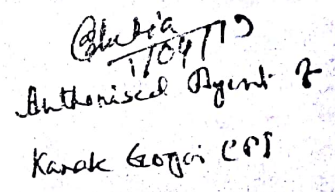 1/04/19
Authorised Agent of
Kanak Gogoi CPI